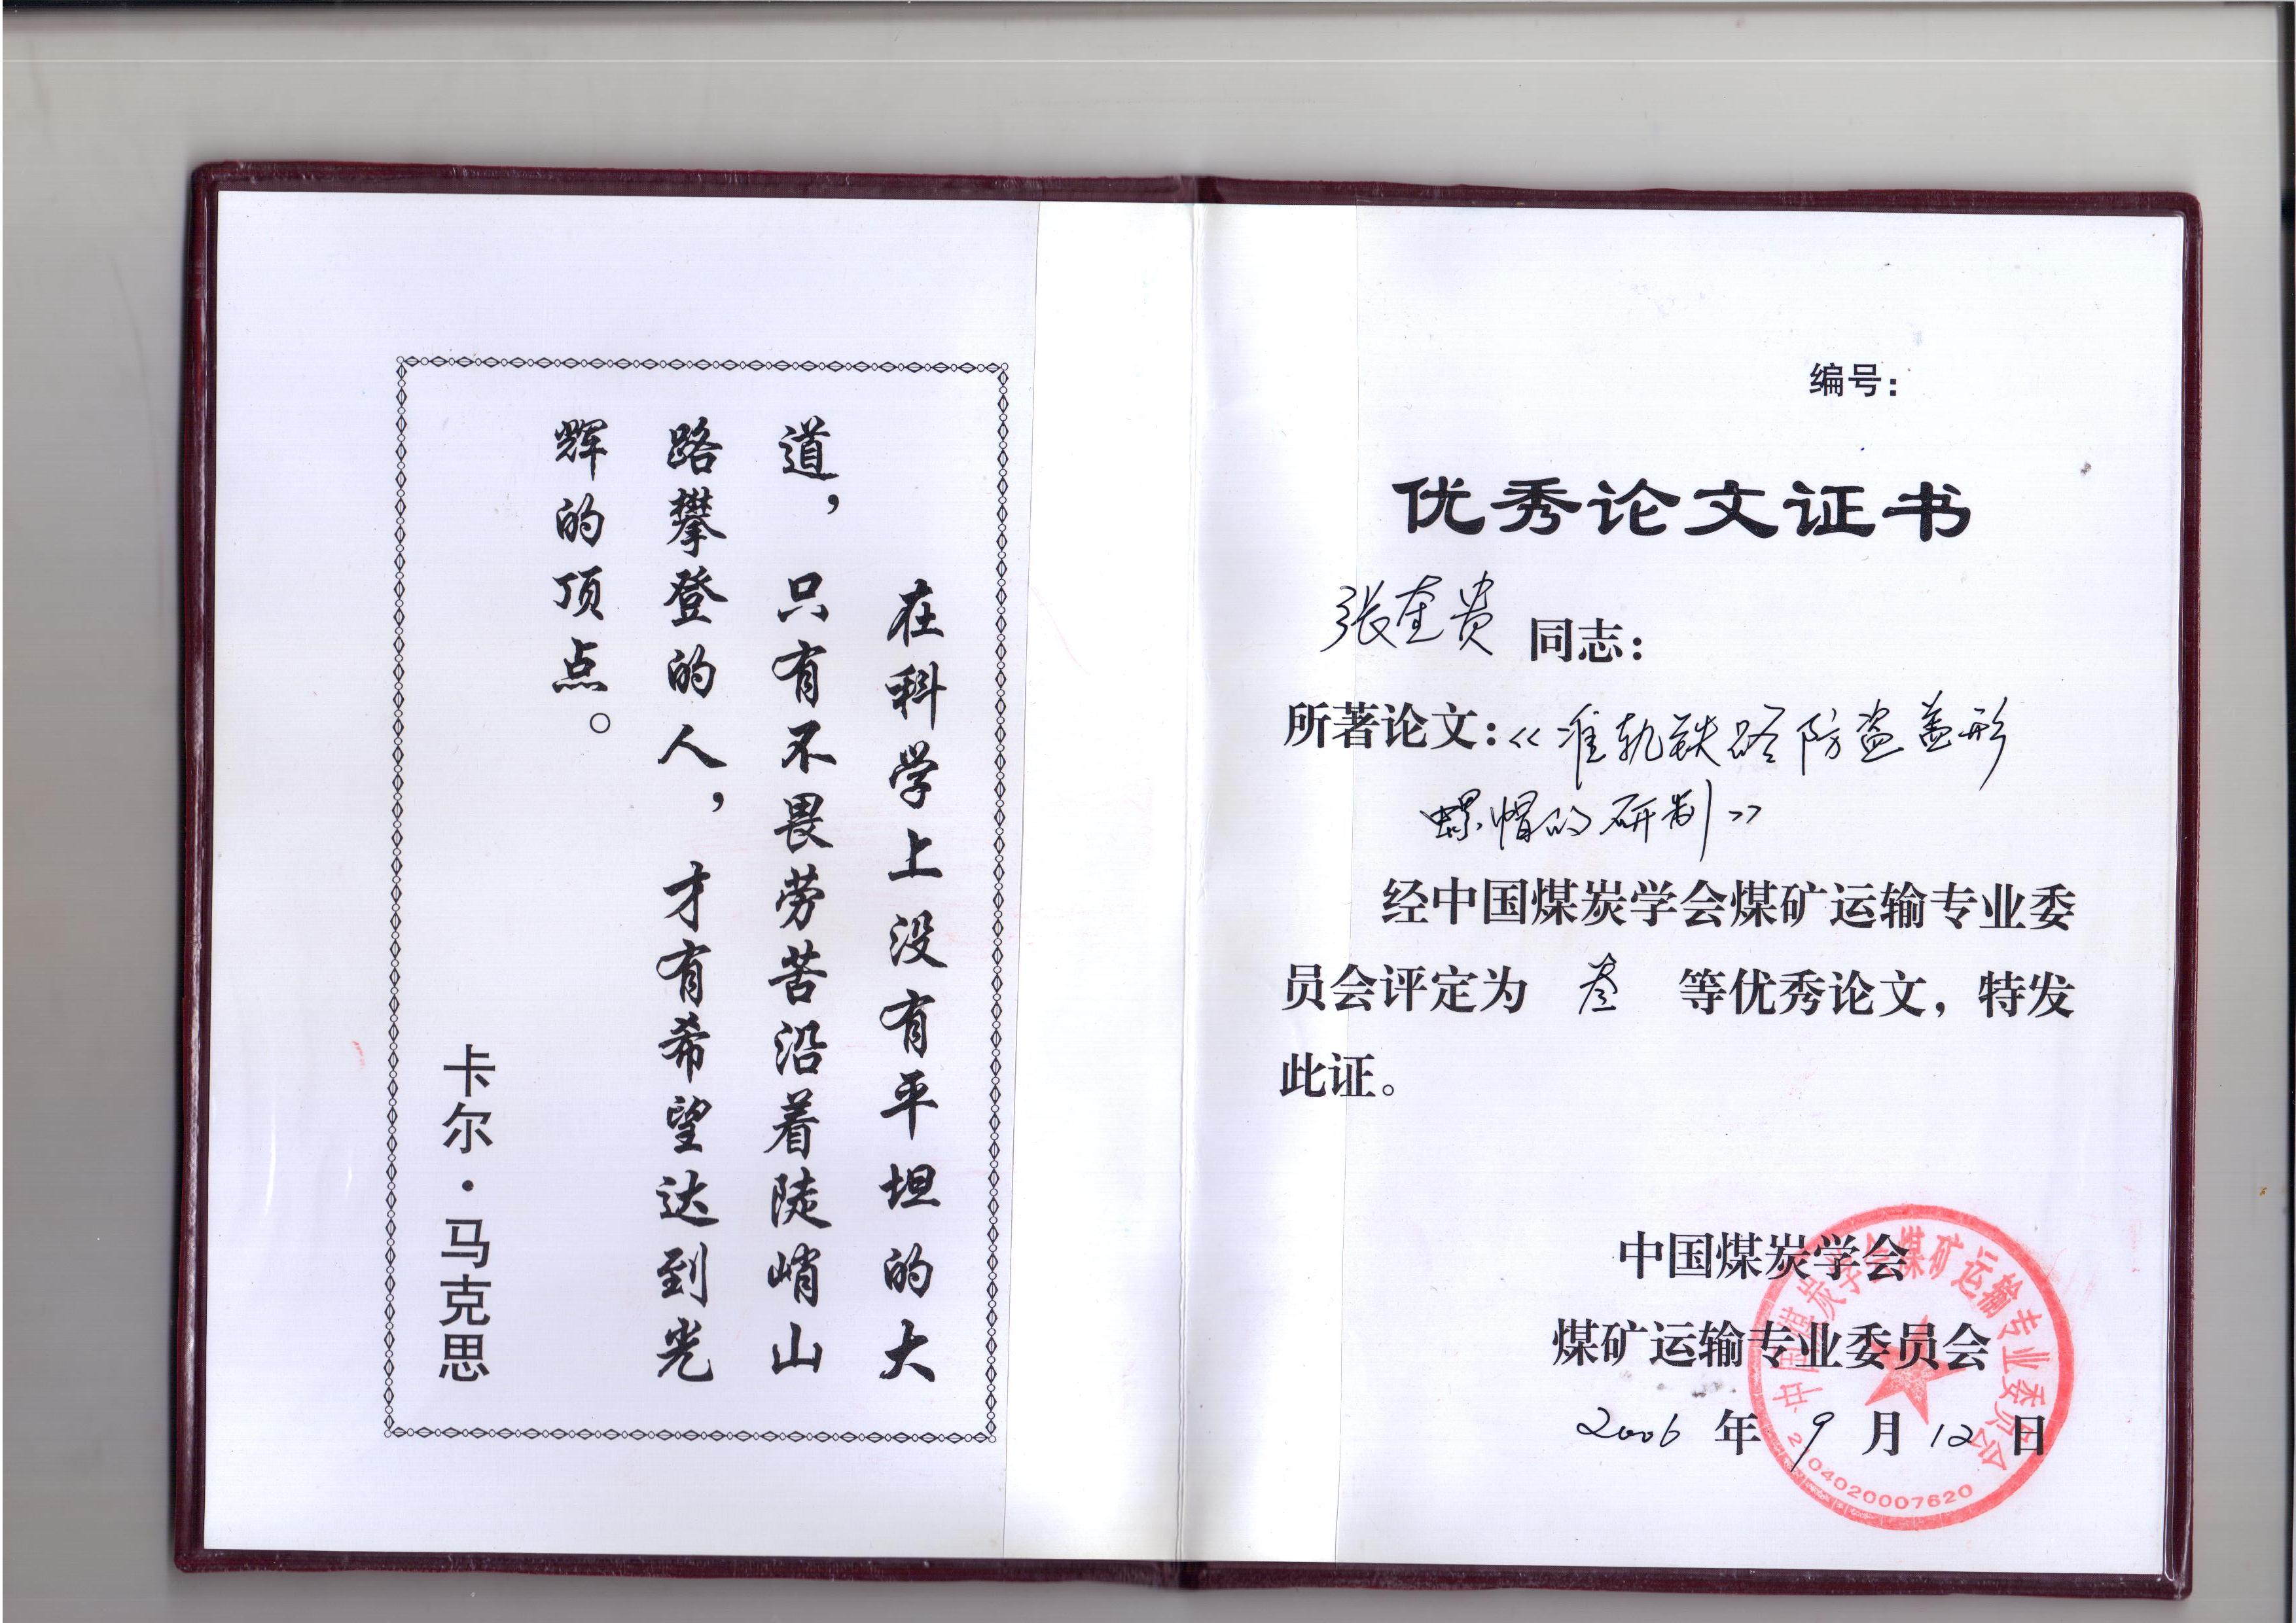 在科学上没有平坦的大
道，只有不畏劳苦沿着陡峭山
路攀登的人，才有希望达到光
辉的顶点。
卡尔·马克思
编号：
优秀论文证书
张奎贵 同志：
所著论文：《准轨铁路防盗盖形
螺帽的研制》
经中国煤炭学会煤矿运输专业委
员会评定为 叁 等优秀论文，特发
此证。
中国煤炭学会
煤矿运输专业委员会
2006 年 9 月 12 日
中国煤炭学会煤矿运输专业委员会
2104020007620